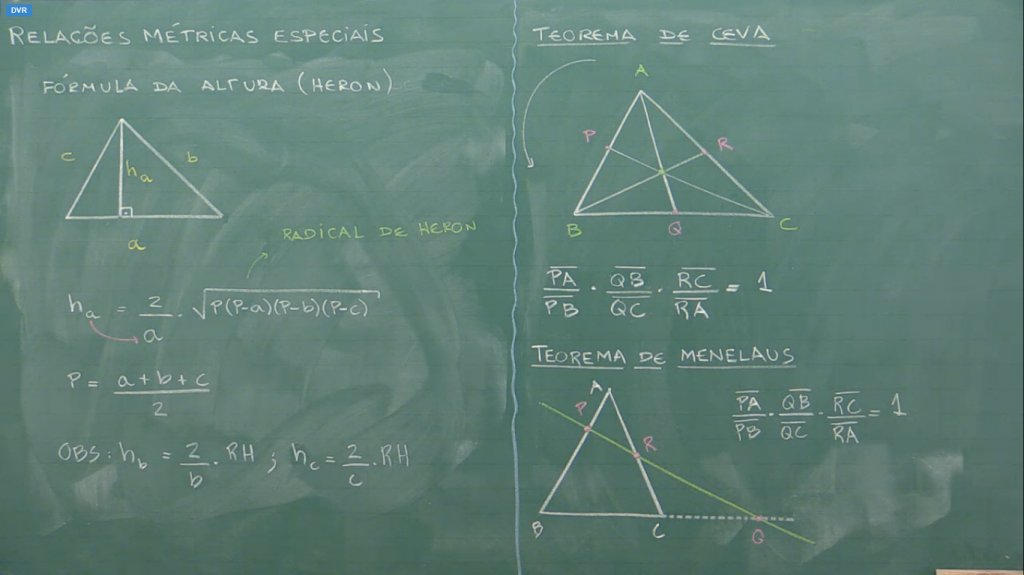 DVR
RELAÇÕES MÉTRICAS ESPECIAIS
FÓRMULA DA ALTURA (HERON)
c
b
hₐ
a
RADICAL DE HERON
hₐ = 2/a · √P(P-a)(P-b)(P-c)
P = a+b+c/2
OBS: h_b = 2/b . RH ; h_c = 2/c . RH
TEOREMA DE CEVA
A
P
R
B
Q
C
P̅A̅/P̅B̅ · Q̅B̅/Q̅C̅ · R̅C̅/R̅A̅ = 1
TEOREMA DE MENELAUS
A
P
R
B
C
Q
P̅A̅/P̅B̅ · Q̅B̅/Q̅C̅ · R̅C̅/R̅A̅ = 1